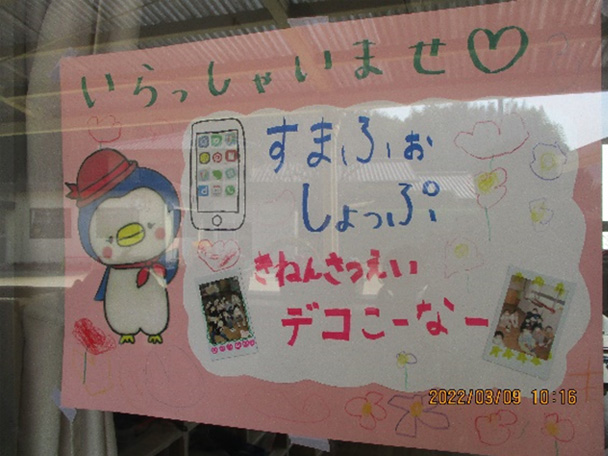 いらっしゃいませ♡
すまふぉ
しょっぷ
きねんさつえい
デコこーなー
2022/03/09 10:16